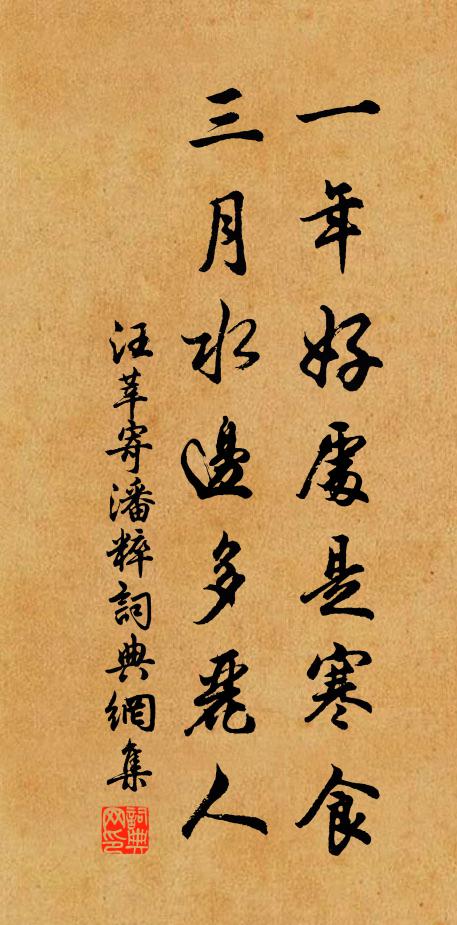 一年好處是寒食
三月水邊多麗人
汪莘寄潘粹詞典網集
詞典网印